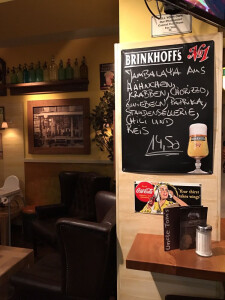 BRINKHOFF's No1
JAMBALAYA AUS
HÄHNCHEN,
KRABBEN, CHORIZO,
ZWIEBELN, PAPRIKA,
STAUDENSELLERIE,
CHILI UND
REIS
14,50
Drink
Coca-Cola
Your thirst
takes wings!